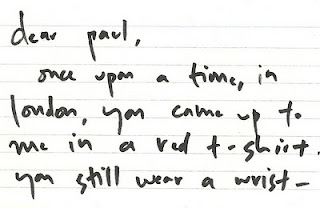 dear paul,
once upon a time, in
london, you came up to
me in a red t-shirt.
you still wear a wrist-